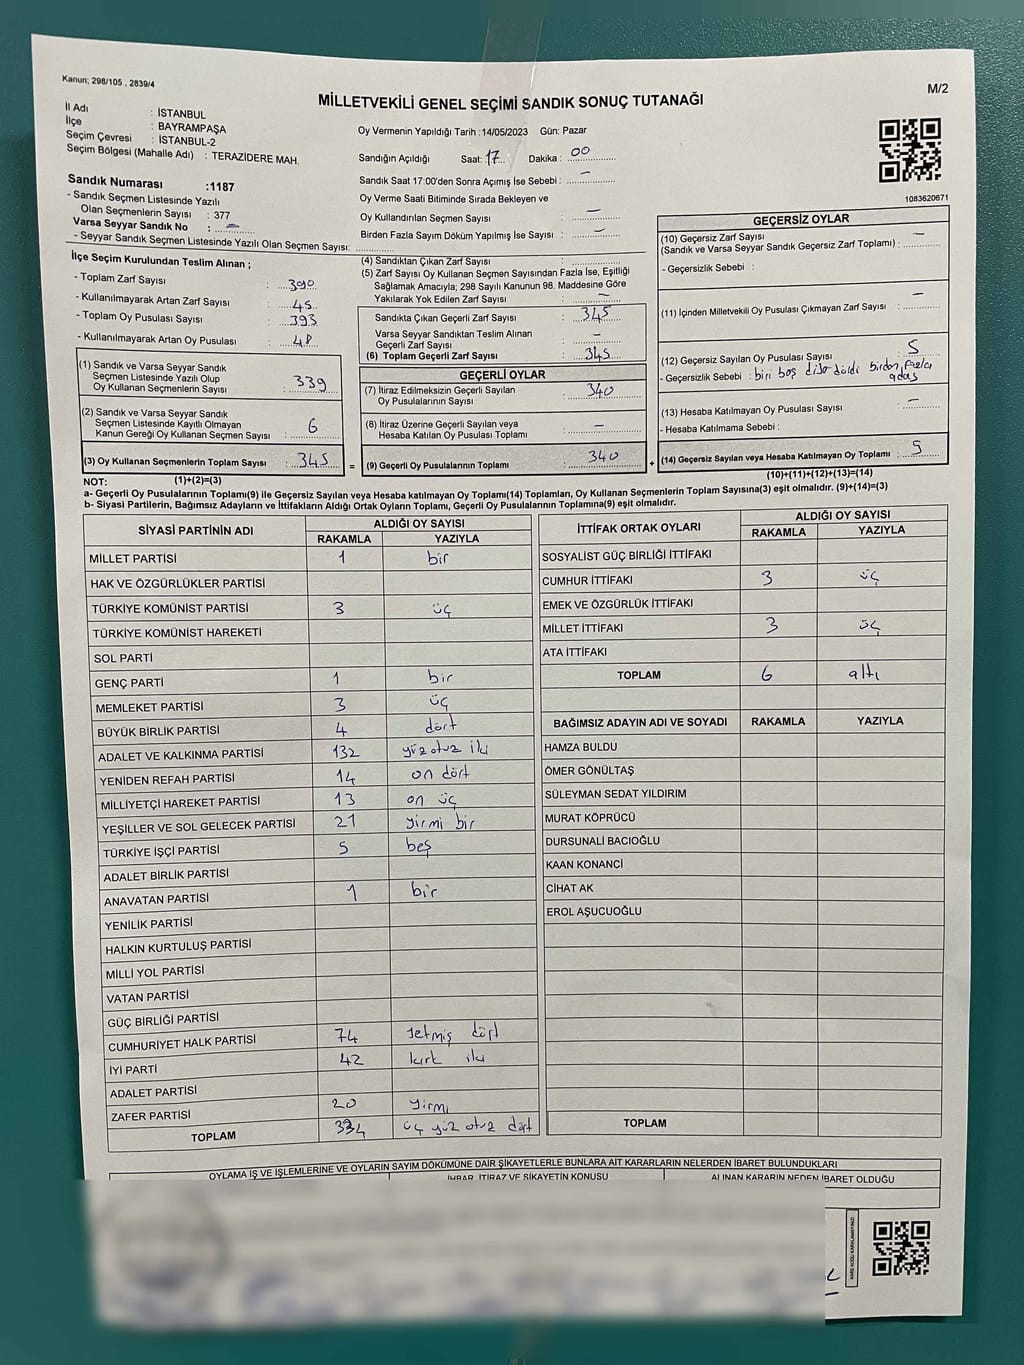 Kanun; 298/105 , 2839/4
M/2
MİLLETVEKİLİ GENEL SEÇİMİ SANDIK SONUÇ TUTANAĞI
İl Adı : İSTANBUL
İlçe : BAYRAMPAŞA
Seçim Çevresi : İSTANBUL-2
Seçim Bölgesi (Mahalle Adı) : TERAZİDERE MAH.
Sandık Numarası :1187
- Sandık Seçmen Listesinde Yazılı
Olan Seçmenlerin Sayısı : 377
Varsa Seyyar Sandık No : –
- Seyyar Sandık Seçmen Listesinde Yazılı Olan Seçmen Sayısı:
Oy Vermenin Yapıldığı Tarih :14/05/2023 Gün: Pazar
Sandığın Açıldığı Saat: 17 Dakika : 00
Sandık Saat 17:00'den Sonra Açımış İse Sebebi : –
Oy Verme Saati Bitiminde Sırada Bekleyen ve
Oy Kullandırılan Seçmen Sayısı : –
Birden Fazla Sayım Döküm Yapılmış İse Sayısı : –
1083620671
İlçe Seçim Kurulundan Teslim Alınan ;
- Toplam Zarf Sayısı : 390
- Kullanılmayarak Artan Zarf Sayısı : 45
- Toplam Oy Pusulası Sayısı : 393
- Kullanılmayarak Artan Oy Pusulası : 48
(1) Sandık ve Varsa Seyyar Sandık
Seçmen Listesinde Yazılı Olup
Oy Kullanan Seçmenlerin Sayısı : 339
(2) Sandık ve Varsa Seyyar Sandık
Seçmen Listesinde Kayıtlı Olmayan
Kanun Gereği Oy Kullanan Seçmen Sayısı : 6
(3) Oy Kullanan Seçmenlerin Toplam Sayısı : 345
(4) Sandıktan Çıkan Zarf Sayısı :
(5) Zarf Sayısı Oy Kullanan Seçmen Sayısından Fazla İse, Eşitliği
Sağlamak Amacıyla; 298 Sayılı Kanunun 98. Maddesine Göre
Yakılarak Yok Edilen Zarf Sayısı : –
Sandıkta Çıkan Geçerli Zarf Sayısı : 345
Varsa Seyyar Sandıktan Teslim Alınan
Geçerli Zarf Sayısı : –
(6) Toplam Geçerli Zarf Sayısı : 345
GEÇERLİ OYLAR
(7) İtiraz Edilmeksizin Geçerli Sayılan
Oy Pusulalarının Sayısı : 340
(8) İtiraz Üzerine Geçerli Sayılan veya
Hesaba Katılan Oy Pusulası Toplamı : –
= (9) Geçerli Oy Pusulalarının Toplamı : 340 +
GEÇERSİZ OYLAR
(10) Geçersiz Zarf Sayısı : –
(Sandık ve Varsa Seyyar Sandık Geçersiz Zarf Toplamı) :
- Geçersizlik Sebebi :
(11) İçinden Milletvekili Oy Pusulası Çıkmayan Zarf Sayısı : –
(12) Geçersiz Sayılan Oy Pusulası Sayısı : 5
- Geçersizlik Sebebi : biri boş diğer dördü birden fazla
(13) Hesaba Katılmayan Oy Pusulası Sayısı : –
- Hesaba Katılmama Sebebi :
(14) Geçersiz Sayılan veya Hesaba Katılmayan Oy Toplamı : 5
NOT: (1)+(2)=(3)
(10)+(11)+(12)+(13)=(14)
a- Geçerli Oy Pusulalarının Toplamı(9) ile Geçersiz Sayılan veya Hesaba katılmayan Oy Toplamı(14) Toplamları, Oy Kullanan Seçmenlerin Toplam Sayısına(3) eşit olmalıdır. (9)+(14)=(3)
b- Siyasi Partilerin, Bağımsız Adayların ve İttifakların Aldığı Ortak Oyların Toplamı, Geçerli Oy Pusulalarının Toplamına(9) eşit olmalıdır.
SİYASİ PARTİNİN ADI ALDIĞI OY SAYISI
RAKAMLA YAZIYLA
MİLLET PARTİSİ 1 bir
HAK VE ÖZGÜRLÜKLER PARTİSİ
TÜRKİYE KOMÜNİST PARTİSİ 3 üç
TÜRKİYE KOMÜNİST HAREKETİ
SOL PARTİ
GENÇ PARTİ 1 bir
MEMLEKET PARTİSİ 3 üç
BÜYÜK BİRLİK PARTİSİ 4 dört
ADALET VE KALKINMA PARTİSİ 132 yüz otuz iki
YENİDEN REFAH PARTİSİ 14 on dört
MİLLİYETÇİ HAREKET PARTİSİ 13 on üç
YEŞİLLER VE SOL GELECEK PARTİSİ 21 yirmi bir
TÜRKİYE İŞÇİ PARTİSİ 5 beş
ADALET BİRLİK PARTİSİ
ANAVATAN PARTİSİ 1 bir
YENİLİK PARTİSİ
HALKIN KURTULUŞ PARTİSİ
MİLLİ YOL PARTİSİ
VATAN PARTİSİ
GÜÇ BİRLİĞİ PARTİSİ
CUMHURİYET HALK PARTİSİ 74 yetmiş dört
İYİ PARTİ 42 kırk iki
ADALET PARTİSİ
ZAFER PARTİSİ 20 yirmi
TOPLAM 334 üç yüz otuz dört
İTTİFAK ORTAK OYLARI ALDIĞI OY SAYISI
RAKAMLA YAZIYLA
SOSYALİST GÜÇ BİRLİĞİ İTTİFAKI
CUMHUR İTTİFAKI 3 üç
EMEK VE ÖZGÜRLÜK İTTİFAKI
MİLLET İTTİFAKI 3 üç
ATA İTTİFAKI
TOPLAM 6 altı
BAĞIMSIZ ADAYIN ADI VE SOYADI RAKAMLA YAZIYLA
HAMZA BULDU
ÖMER GÖNÜLTAŞ
SÜLEYMAN SEDAT YILDIRIM
MURAT KÖPRÜCÜ
DURSUNALİ BACIOĞLU
KAAN KONANCİ
CİHAT AK
EROL AŞUCUOĞLU
TOPLAM
OYLAMA İŞ VE İŞLEMLERİNE VE OYLARIN SAYIM DÖKÜMÜNE DAİR ŞİKAYETLERLE BUNLARA AİT KARARLARIN NELERDEN İBARET BULUNDUKLARI
İHBAR, İTİRAZ VE ŞİKAYETİN KONUSU ALINAN KARARIN NEDEN İBARET OLDUĞU